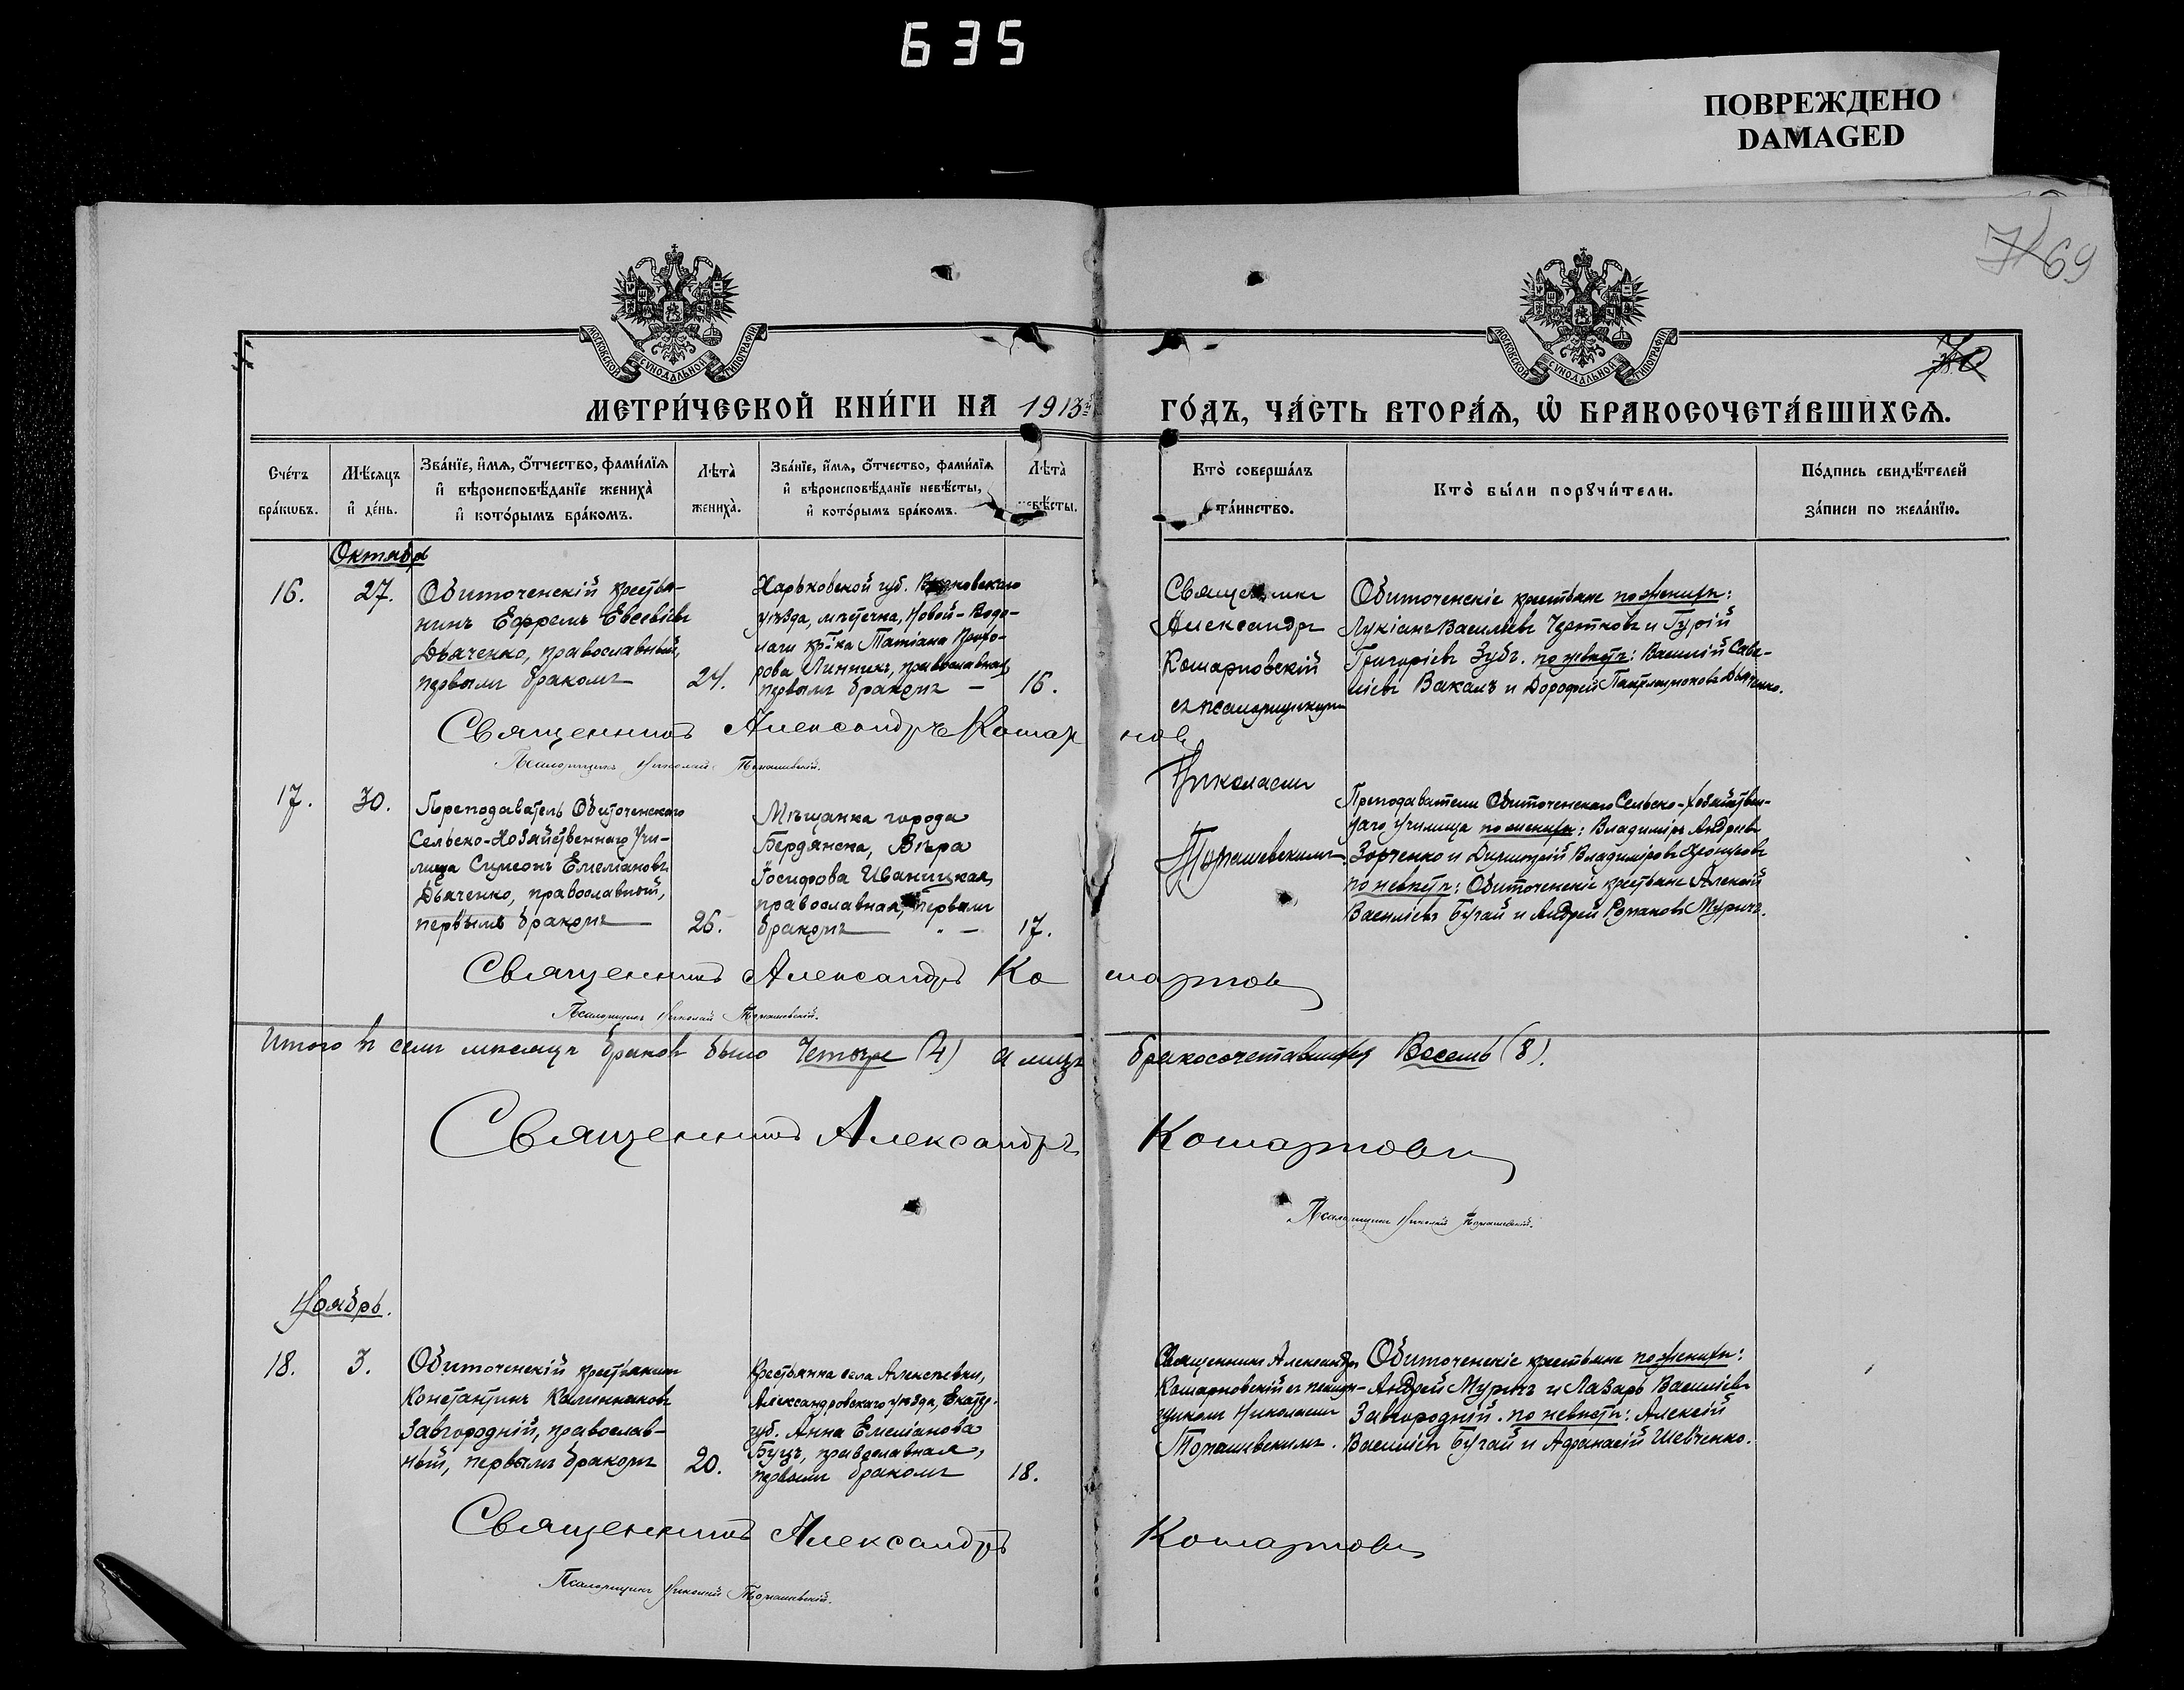 635
ПОВРЕЖДЕНО
DAMAGED
69
70
МОСКОВСКОЙ СѴНОДАЛЬНОЙ ТИПОГРАФІИ
МОСКОВСКОЙ СѴНОДАЛЬНОЙ ТИПОГРАФІИ
МЕТРИ́ЧЕСКОЙ КНИ́ГИ НА 1913й ГО́ДЪ, ЧА́СТЬ ВТОРА́Я, Ѡ БРАКОСОЧЕТА́ВШИХСЯ.
Сче́тъ бра́кѡвъ.
Мѣ́сяцъ и҆ де́нь.
Зва́нїе, и҆́мя, ѻ҆́тчество, фами́лїя и҆ вѣроисповѣ́данїе жениха̀ и҆ кото́рымъ бра́комъ.
Лѣта̀ жениха̀.
Зва́нїе, и҆́мя, ѻ҆́тчество, фами́лїя и҆ вѣроисповѣ́данїе невѣ́сты, и҆ кото́рымъ бра́комъ.
Лѣта̀ невѣ́сты.
Кто̀ соверша́лъ та́инство.
Кто̀ бы́ли порꙋчи́тели.
По́дпись свидѣ́телей за́писи по жела́нїю.
Октябрь
16.
27.
Обиточенскій крестья-
нинъ Ефремъ Евсевіевъ
Дьяченко, православный,
первымъ бракомъ
24.
Харьковской губ.
уѣзда, мѣстечка, Новой-Водо-
лаги кр-ка Татіана Прохо-
рова Линникъ, православная,
первымъ бракомъ —
16.
Священникъ
Александръ
Комарновскій
съ псаломщикомъ
Николаемъ
Томашевскимъ.
Обиточенскіе крестьяне по женихѣ:
Лукіанъ Васильевъ Чертковъ и Гурій
Григоріевъ Зубъ. по невѣстѣ: Василій Саве-
ліевъ Вакалъ и Дорофей Дьяченко.
Священникъ Александръ Комарнов
Псаломщикъ Николай Томашевскій.
17.
30.
Преподаватель Обиточенскаго
Сельско-Хозяйственнаго Учи-
лища Симеонъ Емеліановъ
Дьяченко, православный,
первымъ бракомъ
26.
Мѣщанка города
Бердянска, Вѣра
Іосифова Иваницкая,
православная, первымъ
бракомъ —
17.
Преподаватели Обиточенскаго Сельско-Хозяйствен-
наго Училища по женихѣ: Владиміръ Андреевъ
Зорченко и Димитрій Владиміровъ
по невѣстѣ: Обиточенскіе крестьяне Алексій
Васильевъ Бугай и Андрей Романовъ Муричъ.
Священникъ Александръ Комарнов
Псаломщикъ Николай Томашевскій.
Итого въ семъ мѣсяцѣ браковъ было Четыре (4) а лицъ бракосочетавшихся Восемь (8).
Священникъ Александръ Комарнов
Псаломщикъ Николай Томашевскій.
Ноябрь.
18.
3.
Обиточенскій крестьянинъ
Константинъ Калинниковъ
Завгородній, православ-
ный, первымъ бракомъ
20.
Крестьянка села Алексѣевки,
Александровскаго уѣзда, Екатер.
губ. Анна Емеліанова
Буцъ, православная,
первымъ бракомъ
18.
Священникъ Александръ
Комарновскій съ псалом-
щикомъ Николаемъ
Томашевскимъ.
Обиточенскіе крестьяне по женихѣ:
Андрей Муричъ и Лазарь Васильевъ
Завгородній. по невѣстѣ: Алексій
Васильевъ Бугай и Афанасій Шевченко.
Священникъ Александръ Комарнов
Псаломщикъ Николай Томашевскій.